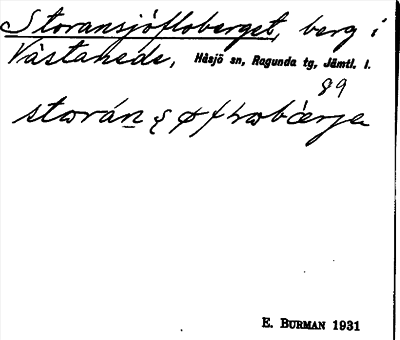 Storansjöfloberget, berg i
Västanede, Håsjö sn, Ragunda tg, Jämtl. l.
89
E. BURMAN 1931